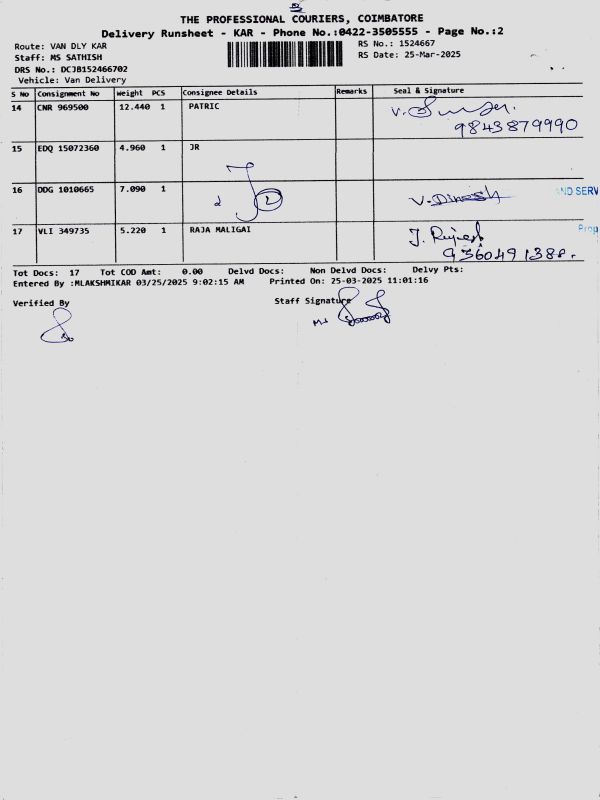 THE PROFESSIONAL COURIERS, COIMBATORE
Delivery Runsheet - KAR - Phone No.:0422-3505555 - Page No.:2
Route: VAN DLY KAR
RS No.: 1524667
Staff: MS SATHISH
RS Date: 25-Mar-2025
DRS No.: DCJB152466702
Vehicle: Van Delivery
S No Consignment No Weight PCS Consignee Details Remarks Seal & Signature
14 CNR 969500 12.440 1 PATRIC
9843879990
15 EDQ 15072360 4.960 1 JR
16 DDG 1010665 7.090 1 2 V. Dinesh ND SERV
17 VLI 349735 5.220 1 RAJA MALIGAI J. Rajesh Prop
9360491388.
Tot Docs: 17 Tot COD Amt: 0.00 Delvd Docs: Non Delvd Docs: Delvy Pts:
Entered By :MLAKSHMIKAR 03/25/2025 9:02:15 AM Printed On: 25-03-2025 11:01:16
Verified By Staff Signature